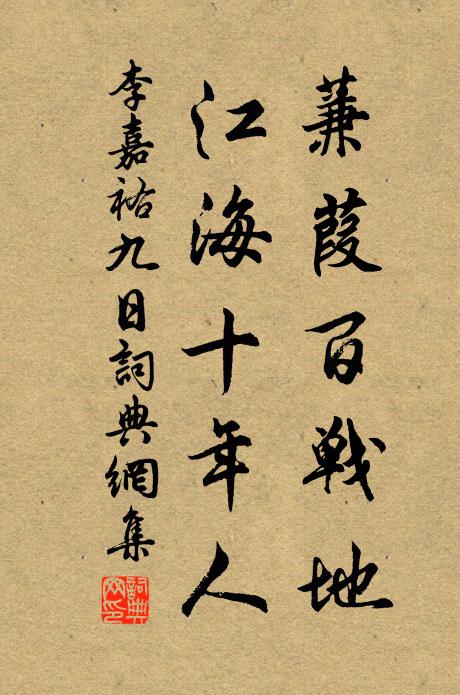 蒹葭百戰地
江海十年人
李嘉祐九日詞典網集
詞典網印